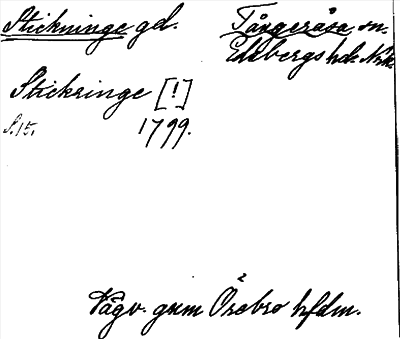 Stickninge gd. Tångeråsa sn.
Edsbergs hd. Nrk.
Stickringe [!]
S. 15. 1799.
2
Vägv. gnm Örebro hfdm.